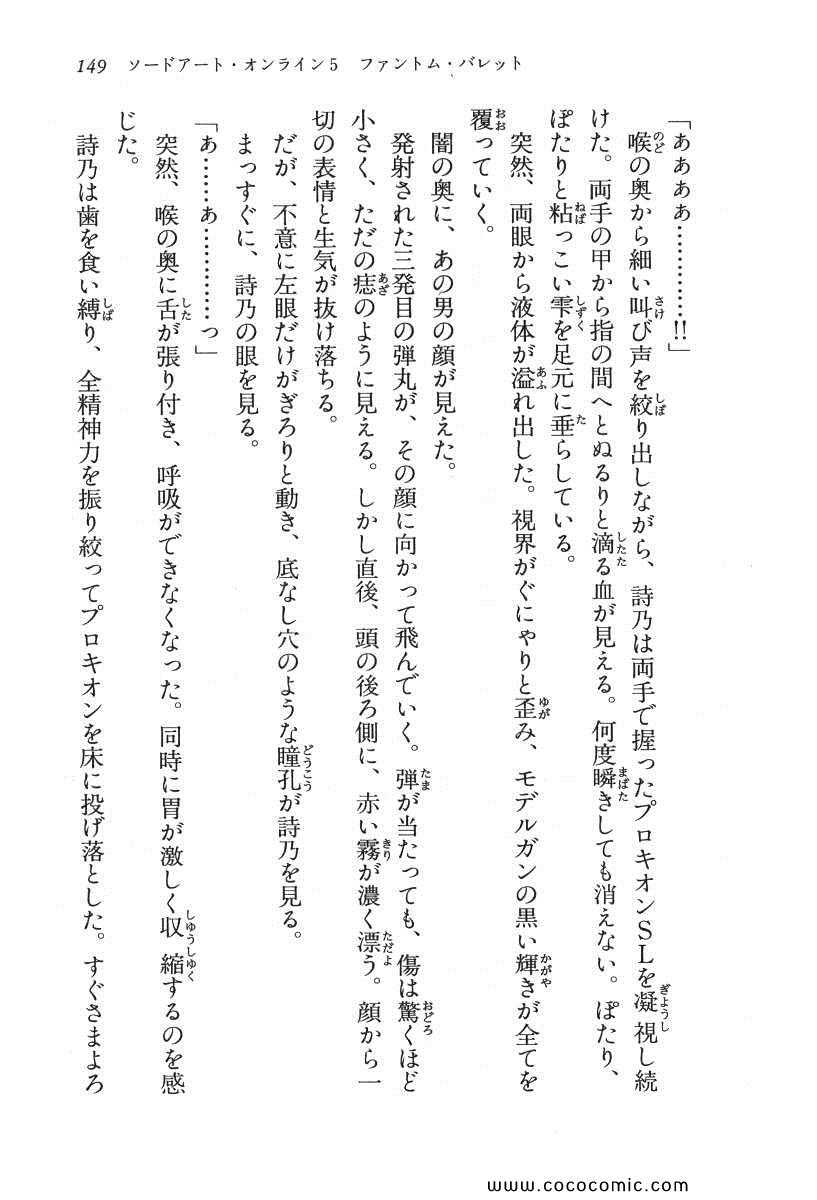 149 ソードアート・オンライン5 ファントム・バレット
「あぁぁぁ…………!!」
喉の奥から細い叫び声を絞り出しながら、詩乃は両手で握ったプロキオンSLを凝視し続
けた。両手の甲から指の間へとぬるりと滴る血が見える。何度瞬きしても消えない。ぽたり、
ぽたりと粘っこい雫を足元に垂らしている。
突然、両眼から液体が溢れ出した。視界がぐにゃりと歪み、モデルガンの黒い輝きが全てを
覆っていく。
闇の奥に、あの男の顔が見えた。
発射された三発目の弾丸が、その顔に向かって飛んでいく。弾が当たっても、傷は驚くほど
小さく、ただの痣のように見える。しかし直後、頭の後ろ側に、赤い霧が濃く漂う。顔から一
切の表情と生気が抜け落ちる。
だが、不意に左眼だけがぎろりと動き、底なし穴のような瞳孔が詩乃を見る。
まっすぐに、詩乃の眼を見る。
「ぁ……ぁ…………っ」
突然、喉の奥に舌が張り付き、呼吸ができなくなった。同時に胃が激しく収縮するのを感
じた。
詩乃は歯を食い縛り、全精神力を振り絞ってプロキオンを床に投げ落とした。すぐさまよろ
www.cococomic.com